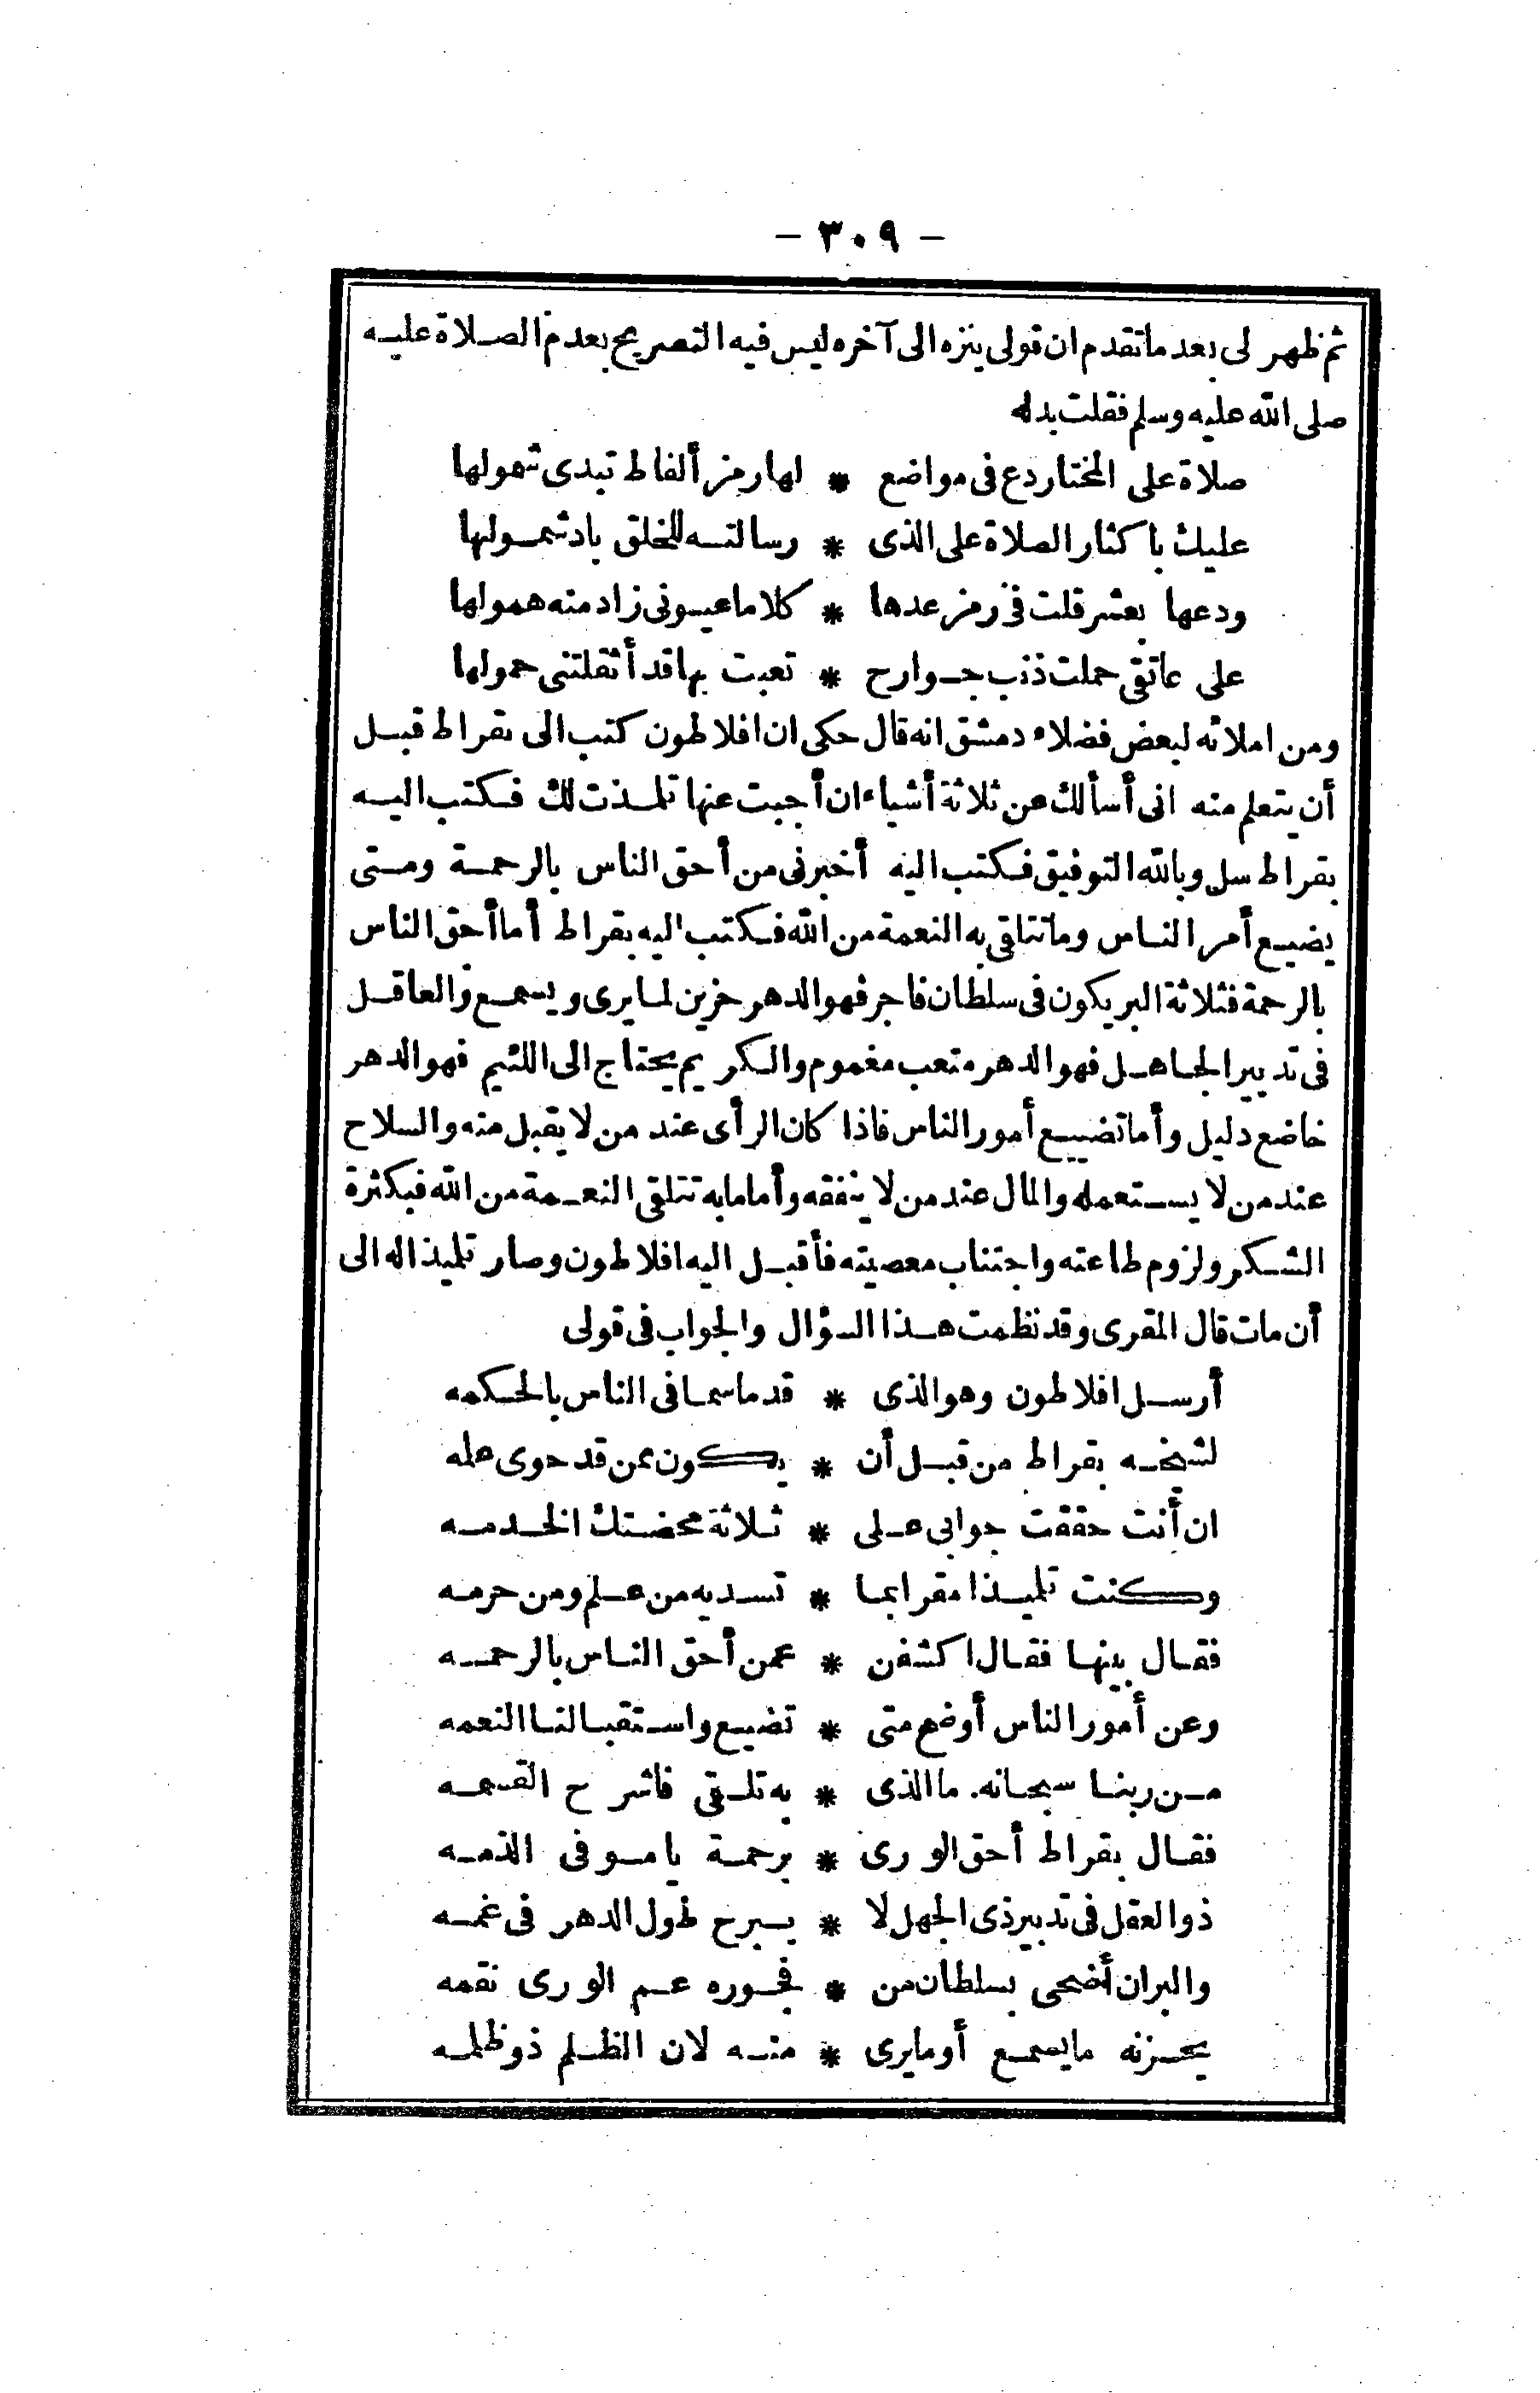 - ٣٠٩ -
ثم ظهر لى بعد ما تقدم ان قولى ينزه الى آخره ليس فيه التصريح بعدم الصلاة عليه
صلى الله عليه وسلم فقلت بدله
صلاة على المختار دع فى مواضع * لها رمز ألفاظ تبدى شمولها
عليك باكثار الصلاة على الذى * رسالته للخلق باد شمولها
ودعها بعشر قلت فى رمز عدها * كلاما عيونى زاد منه همولها
على عاتقى حملت ذنب جوارح * تعبت بها قد أثقلتنى حمولها
ومن املائه لبعض فضلاء دمشق انه قال حكى ان افلاطون كتب الى بقراط قبل
أن يتعلم منه انى أسألك عن ثلاثة أشياء ان أجبت عنها تلمذت لك فكتب اليه
بقراط سل وبالله التوفيق فكتب اليه أخبرنى من أحق الناس بالرحمة ومتى
يضيع أمر الناس وما تتلقى به النعمة من الله فكتب اليه بقراط أما أحق الناس
بالرحمة فثلاثة البر يكون فى سلطان فاجر فهو الدهر حزين لما يرى ويسمع والعاقل
فى تدبير الجاهل فهو الدهر متعب مغموم والكريم يحتاج الى اللئيم فهو الدهر
خاضع دليل وأما تضييع أمور الناس فاذا كان الرأى عند من لا يقبل منه والسلاح
عند من لا يستعمله والمال عند من لا ينفقه وأما ما به تتلقى النعمة من الله فبكثرة
الشكر ولزوم طاعته واجتناب معصيته فأقبل اليه افلاطون وصار تلميذا له الى
أن مات قال المقرى وقد نظمت هذا السؤال والجواب فى قولى
أرسل افلاطون وهو الذى * قدما سما فى الناس بالحكمه
لشيخه بقراط من قبل أن * يكون ممن قد حوى علمه
ان أنت حققت جوابى على * ثلاثة محضتك الخدمه
وكنت تلميذا مقرا بما * تسديه من علم ومن حرمه
فقال بينها فقال اكشفن * عمن أحق الناس بالرحمه
وعن أمور الناس أوضح متى * تضيع واستقبالنا النعمه
من ربنا سبحانه ما الذى * به تلقى فاشرح القسمه
فقال بقراط أحق الورى * برحمة يا موفى الذمه
ذو العقل فى تدبير ذى الجهل لا * يبرح طول الدهر فى غمه
والبر ان أضحى بسلطان من * فجوره عم الورى نقمه
يحزنه ما يسمع أو ما يرى * منه لان الظلم ذو ظلمه